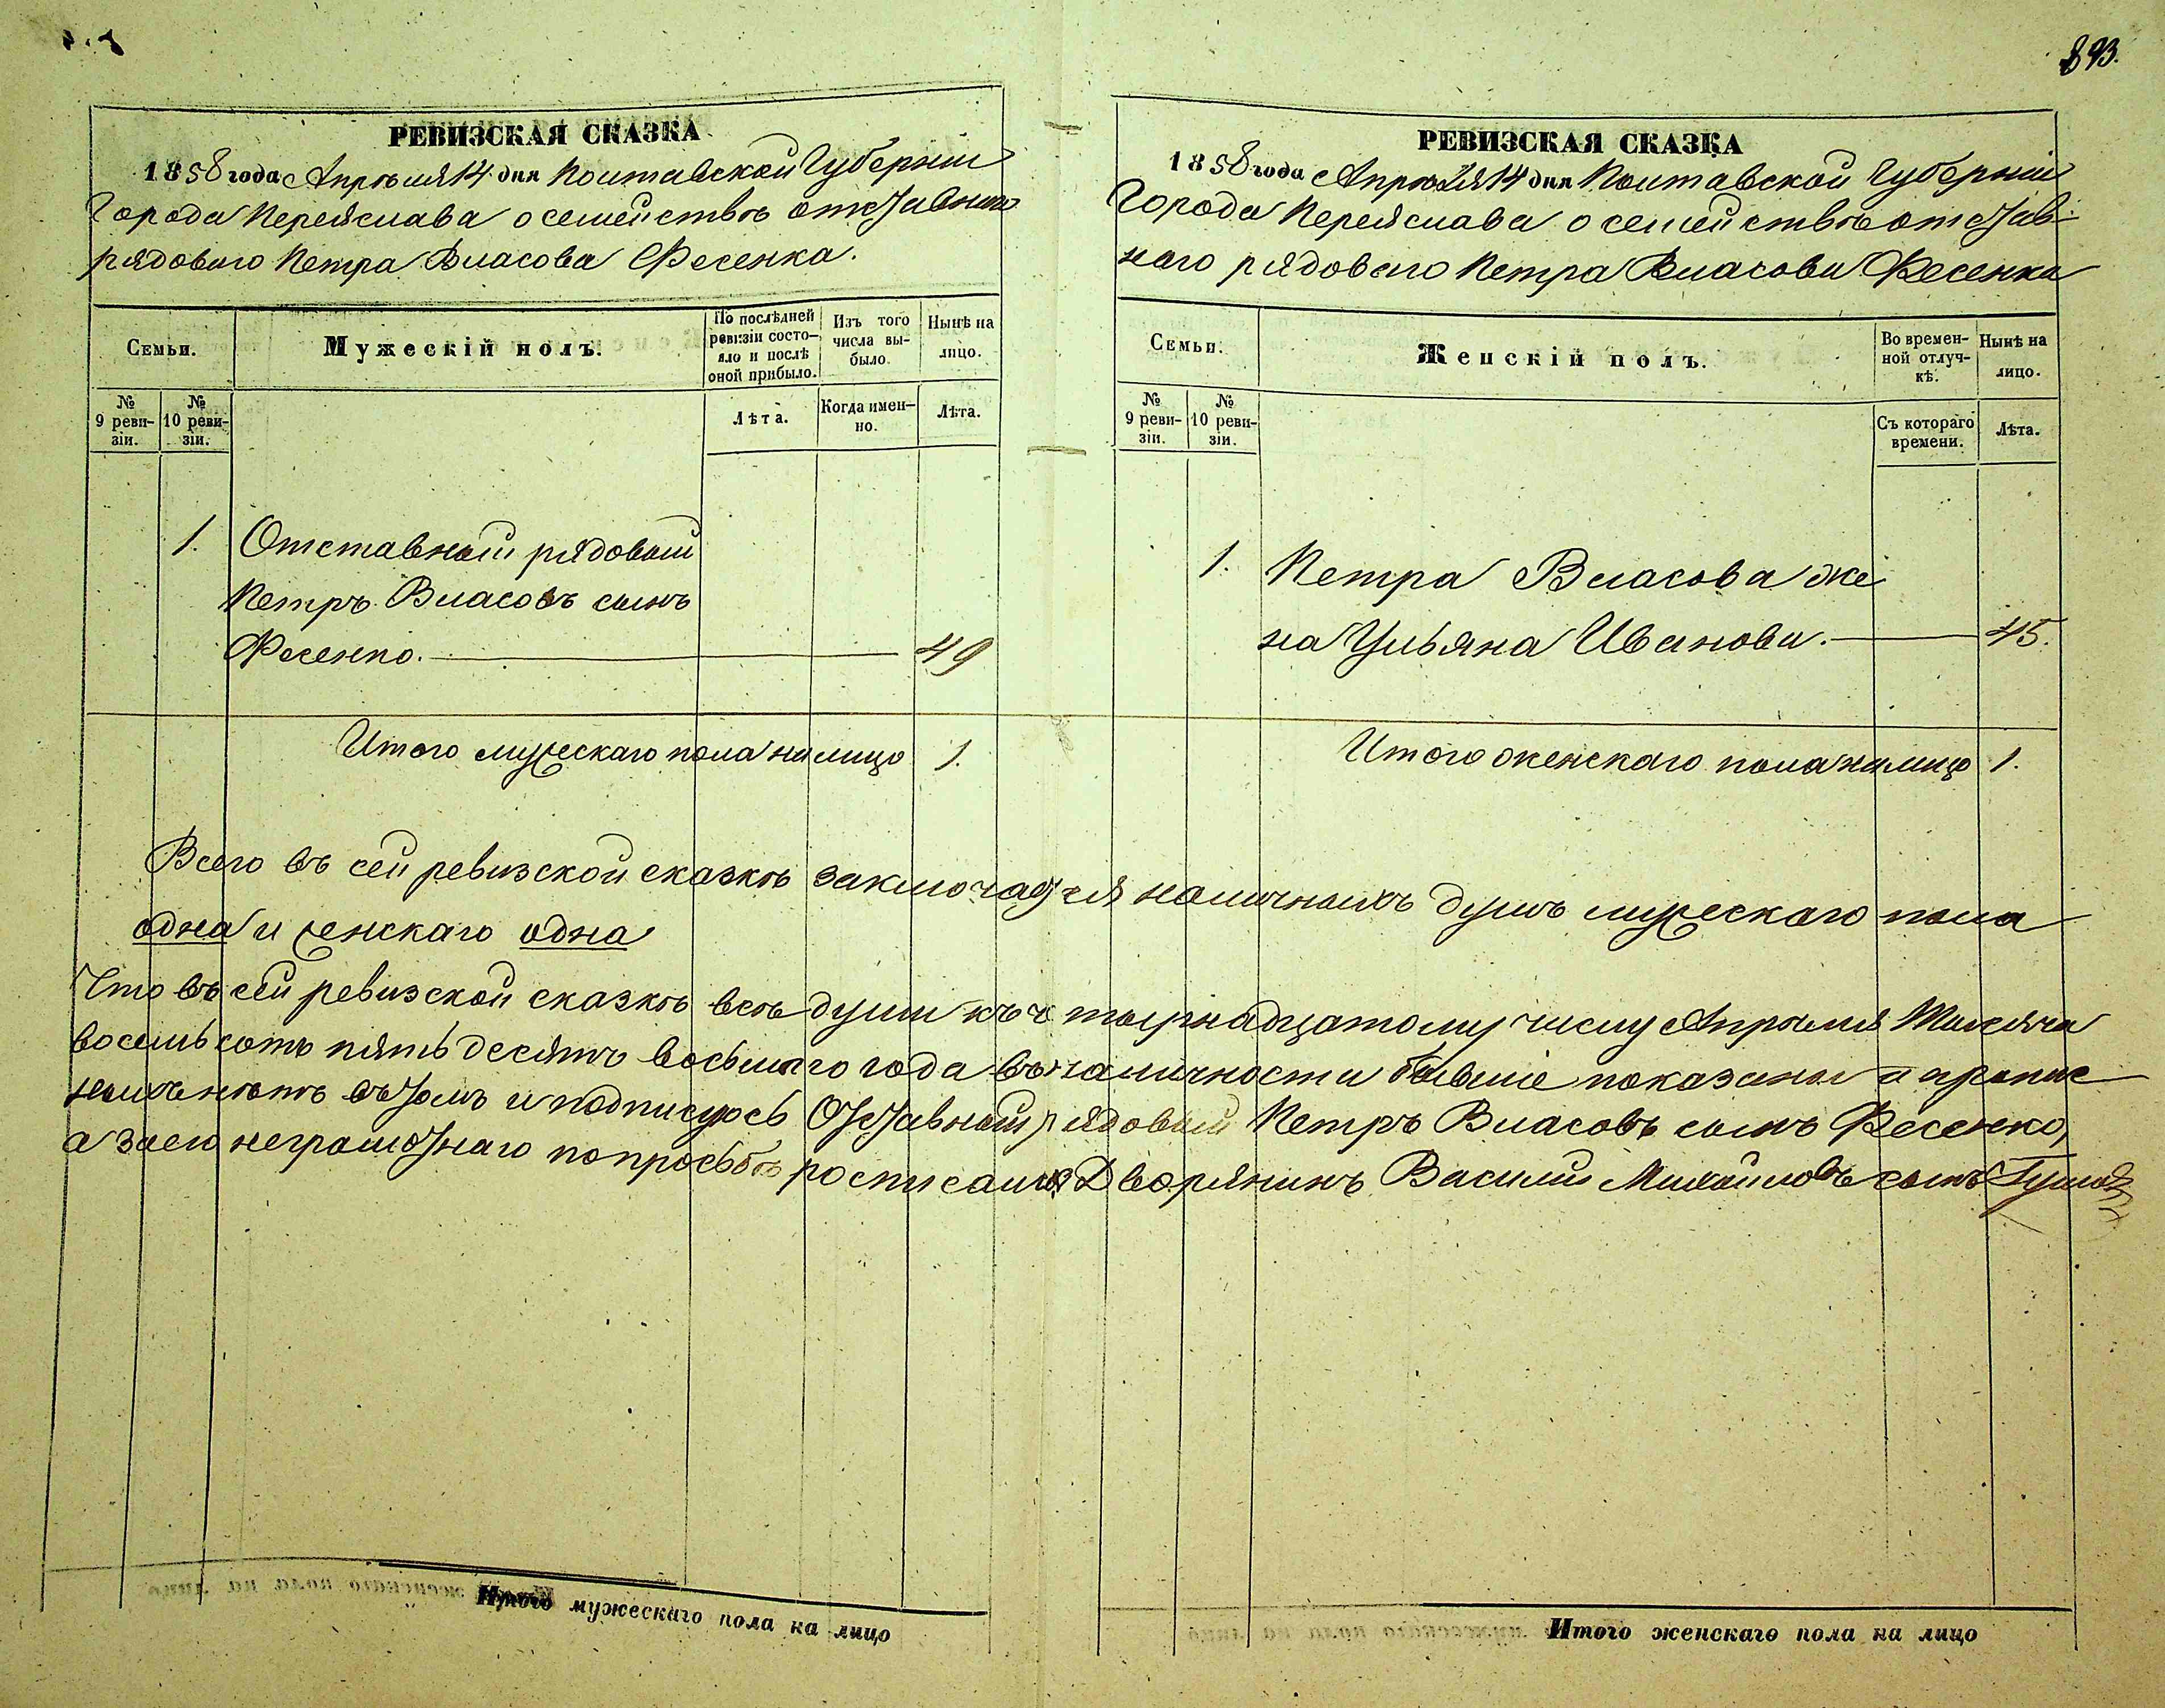 893.
РЕВИЗСКАЯ СКАЗКА
1858 года Апрѣля 14 дня Полтавской Губерніи
Города Переяслава о семействѣ отставнаго
рядоваго Петра Власова Фесенка.
Семьи.
Мужескій полъ.
По послѣдней ревизіи состо-яло и послѣ оной прибыло.
Изъ того числа вы-было.
Нынѣ на лицо.
№ 9 реви-зіи.
№ 10 реви-зіи.
Лѣта.
Когда имен-но.
Лѣта.
1. Отставный рядовый
Петръ Власовъ сынъ
Фесенко. 49
Итого мужескаго пола на лицо 1.
РЕВИЗСКАЯ СКАЗКА
1858 года Апрѣля 14 дня Полтавской Губерніи
Города Переяслава о семействѣ отстав-
наго рядоваго Петра Власова Фесенка
Семьи.
Женскій полъ.
Во времен-ной отлуч-кѣ.
Нынѣ на лицо.
№ 9 реви-зіи.
№ 10 реви-зіи.
Съ котораго времени.
Лѣта.
1. Петра Власова же
на Ульяна Иванова. 45.
Итого женскаго пола на лицо 1.
Всего въ сей ревизской сказкѣ заключается наличныхъ душъ мужескаго пола
одна и женскаго одна
Что въ сей ревизской сказкѣ всѣ души къ четырнадцатому числу Апрѣля Тысяча
восемьсотъ пятьдесятъ восьмаго года въ наличности бывшіе показаны и пропис
ныхъ нѣтъ въ томъ и подписуюсь Отставный рядовый Петръ Власовъ сынъ Фесенко,
а за его неграмотнаго по просьбѣ росписался Дворянинъ Василій Михайловъ сынъ
Итого мужескаго пола на лицо
Итого женскаго пола на лицо